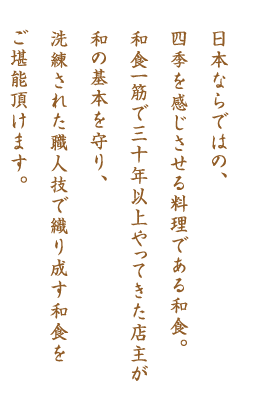 日本ならではの、
四季を感じさせる料理である和食。
和食一筋で三十年以上やってきた店主が
和の基本を守り、
洗練された職人技で織り成す和食を
ご堪能頂けます。